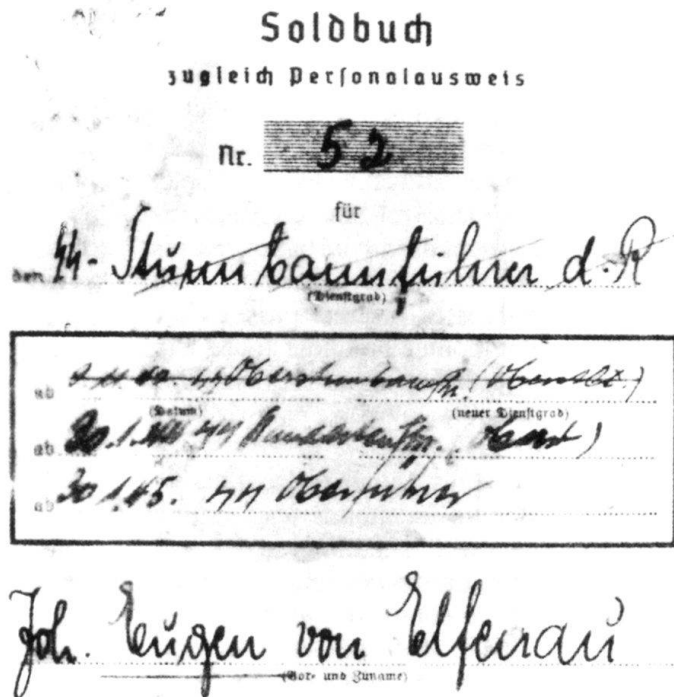 Soldbuch
zugleich Personalausweis
Nr. 52
für
den SS-Sturmbannführer d. R
(Dienstgrad)
ab SS Obersturmbannf.
(Datum) (neuer Dienstgrad)
ab 30.1.44 SS Standartenfhr. (Oberst)
ab 30 1.45. SS Oberführer
Joh. Eugen von Elfenau
(Vor- und Zuname)